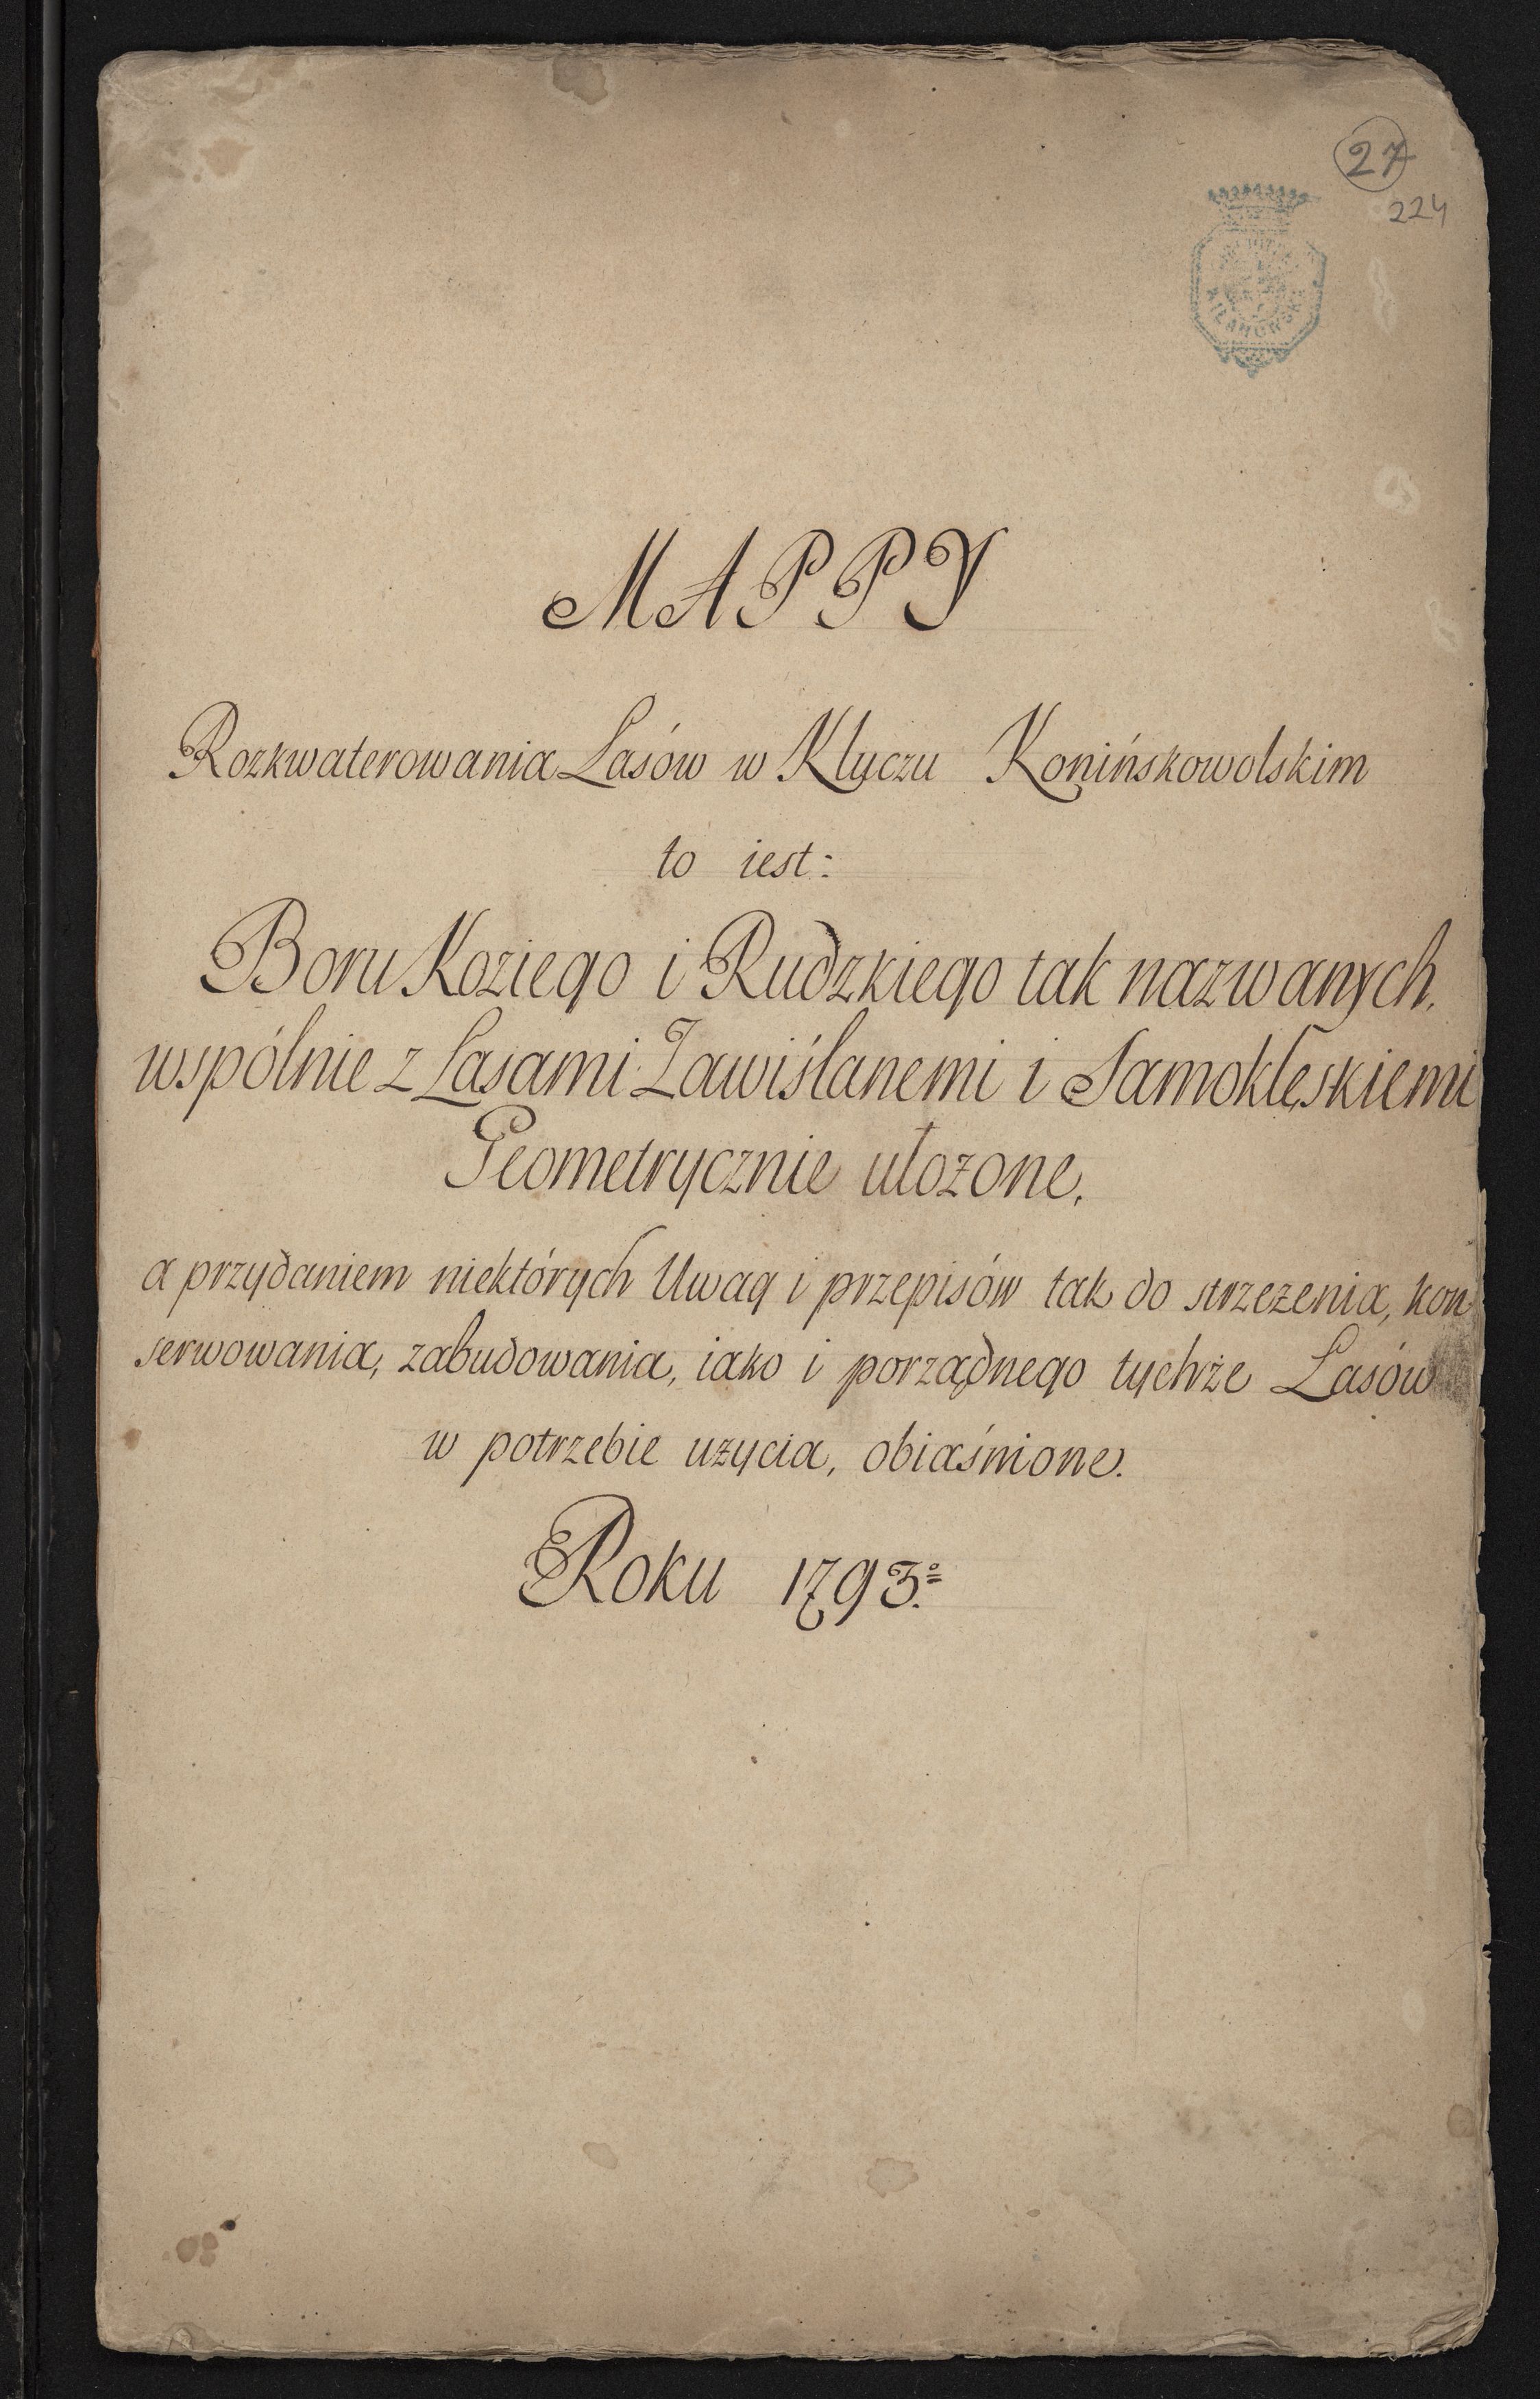 27
224
WILANOWSKA
MAPPY
Rozkwaterowania Lasów w Kluczu Konińskowolskim
to iest:
Boru Koziego i Rudzkiego tak nazwanych.
wspólnie z Lasami Zawiślanemi i Samoklęskiemi
Geometrycznie ułożone.
a przydaniem niektórych Uwag i przepisów tak do strzeżenia, kon
serwowania, zabudowania, iako i porządnego tychże Lasów
w potrzebie użycia, obiaśnione.
Roku 1793.º